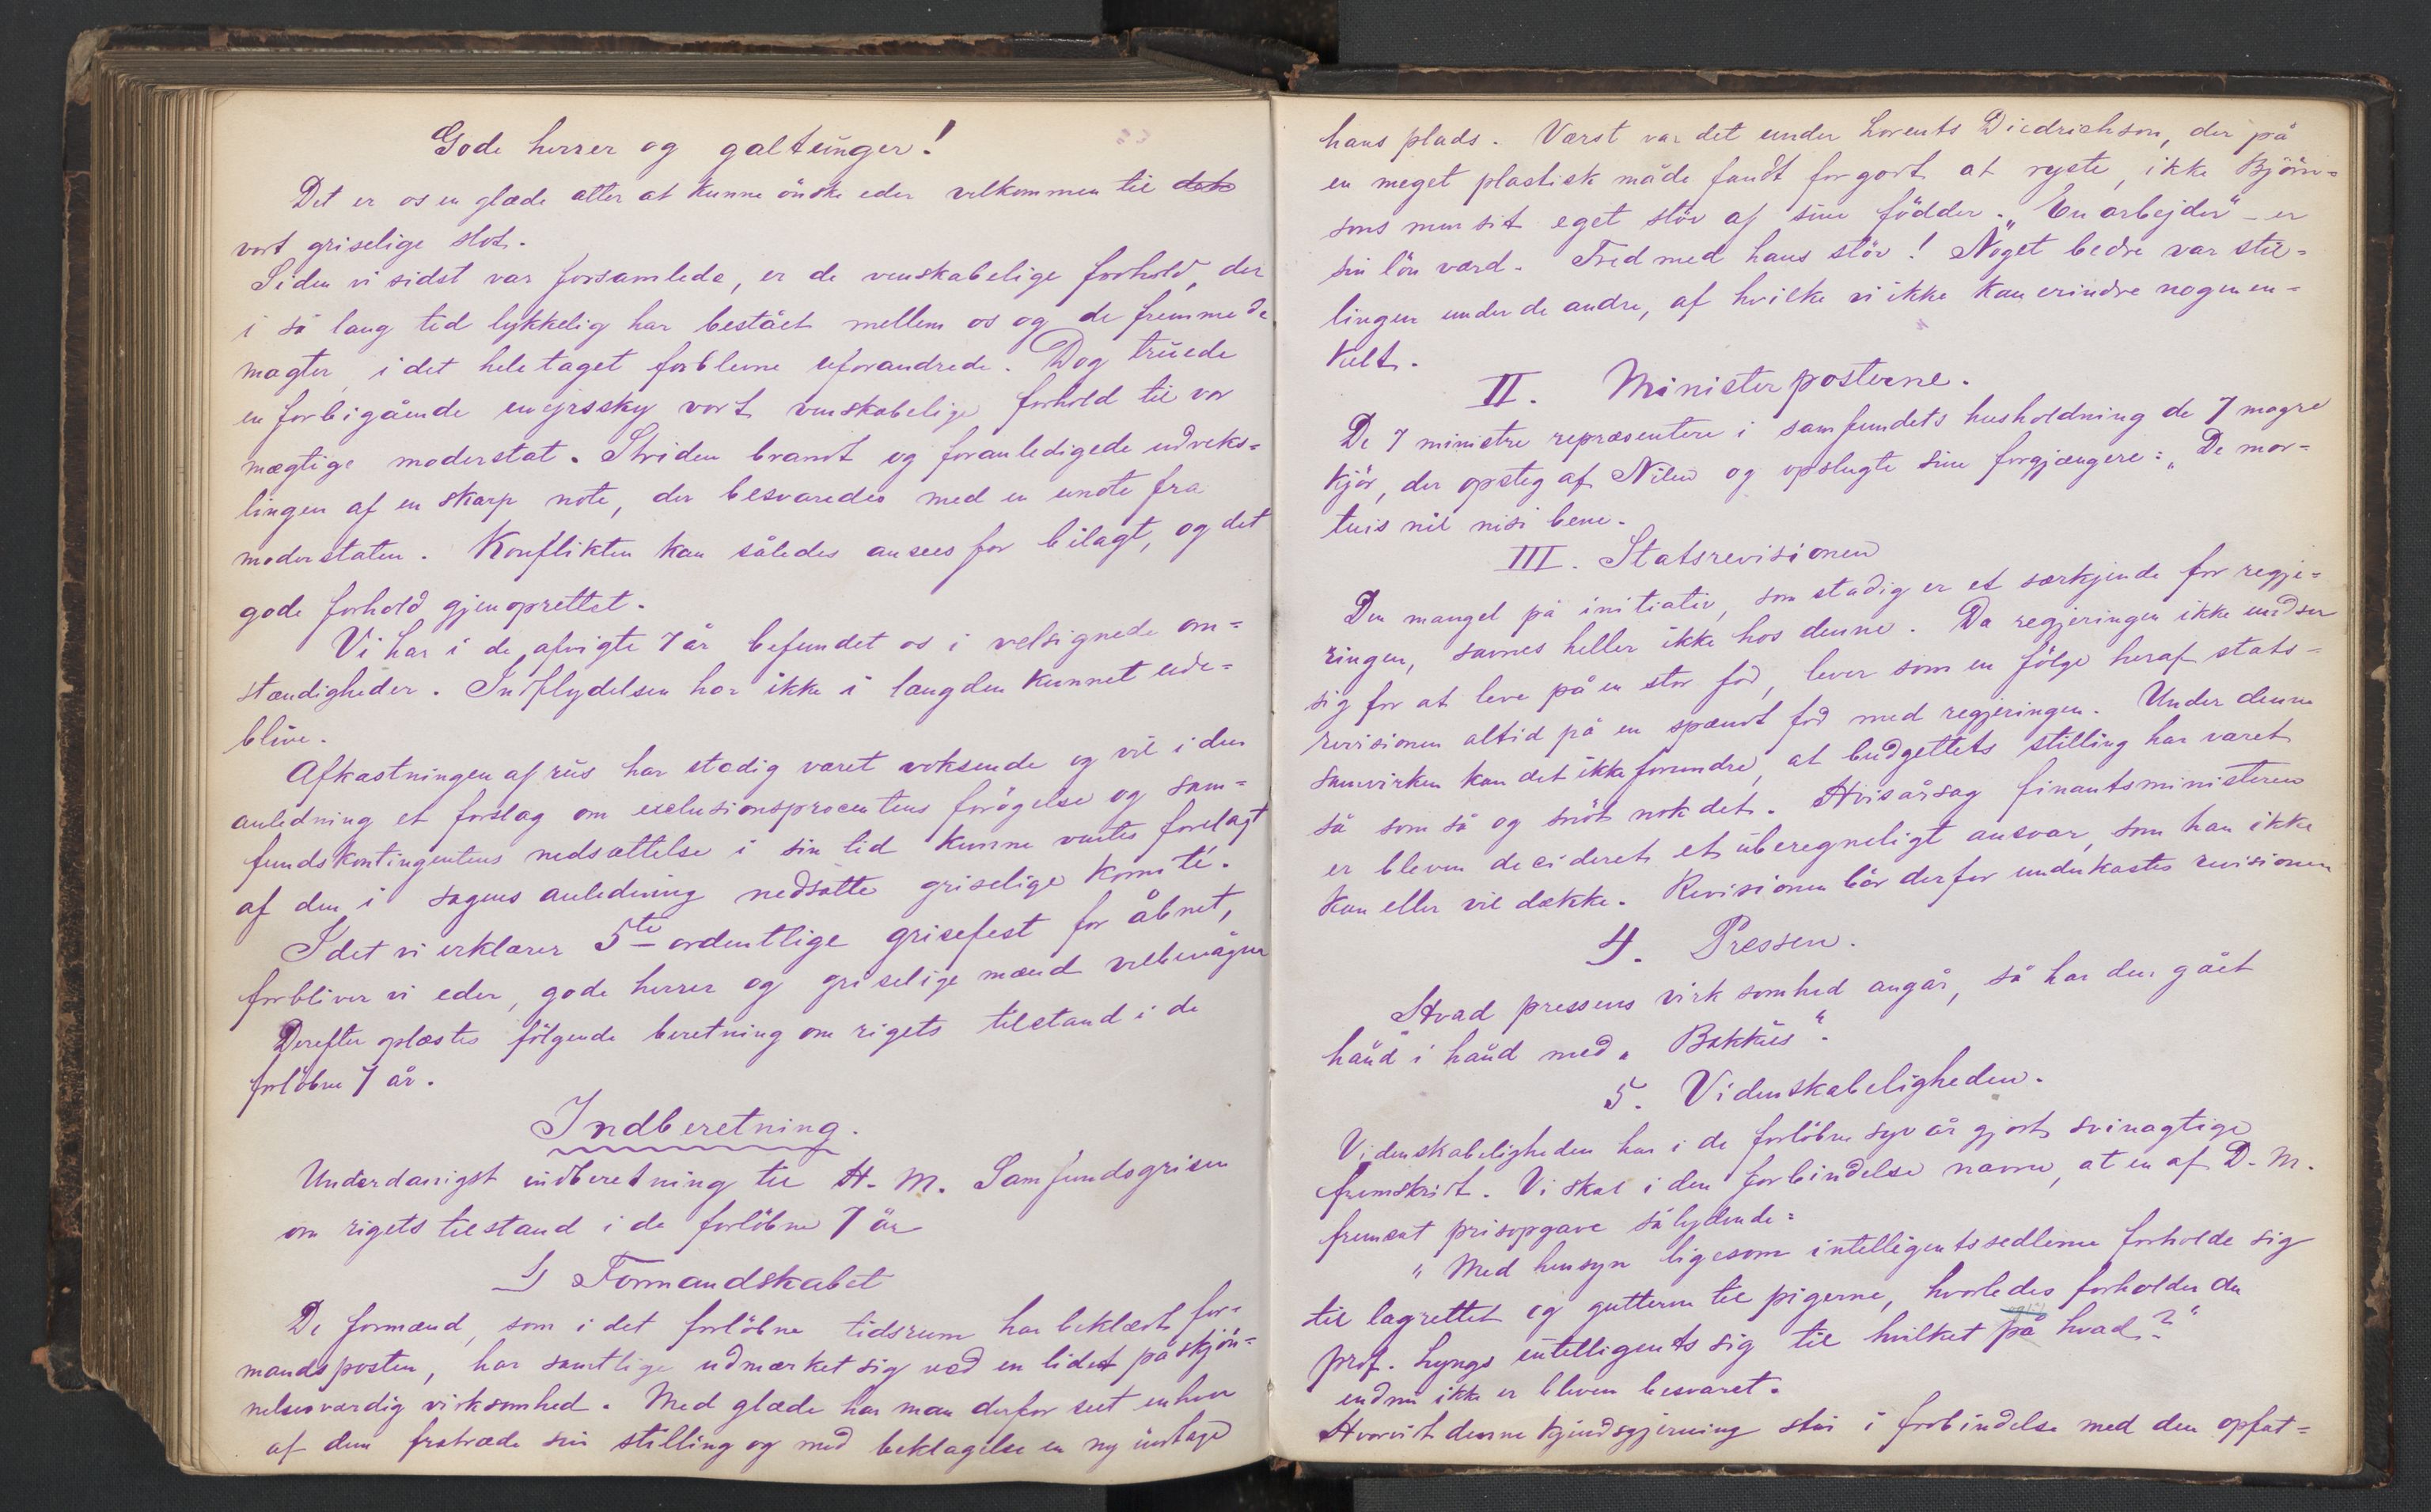 Gode herrer og galtunger!
Det er os en glæde atter at kunne önske eder velkommen til dets
vort griselige slot.
Siden vi sidst var forsamlede, er de venskabelige forhold, der
i så lang tid lykkelig har bestået mellem os og de fremmede
magter, i det hele taget forblevne uforandrede. Dog truede
en forbigående uvejrssky vort venskabelige forhold til vor
mægtige moderstat. Striden brandt og foranledigede udveks-
lingen af en skarp note, der besvaredes med en unote fra
moderstaten. Konflikten kan således ansees for bilagt, og det
gode forhold gjenoprettet.
Vi har i de afvigte 7 år befundet os i velsignede om-
stændigheder. Indflydelsen har ikke i længden kunnet ude-
blive.
Afkastningen af rus har stadig været voksende og vil i den
anledning et forslag om exclusionsprocentens forögelse og sam-
fundskontingentens nedsættelse i sin tid kunne ventes forelagt
af den i sagens anledning nedsatte griselige komité.
Idet vi erklærer 5te ordentlige grisefest for åbnet,
forbliver vi eder, gode herrer og griselige mænd velbevågne
Derefter oplæstes fölgende beretning om rigets tilstand i de
forlöbne 7 år.
Indberetning.
Underdanigst indberetning til H. M. Samfundsgrisen
om rigets tilstand i de forlöbne 7 år
1) Formandskabet
De formænd, som i det forlöbne tidsrum har beklædt for-
mandsposten, har samtlige udmærket sig ved en lidet påskjön-
nelsesværdig virksomhed. Med glæde har man derfor seet enhver
af dem fratræde sin stilling og med beklagelse en ny indtage
hans plads. Værst var det under Lorents Diedrichson, der på
en meget plastisk måde fandt forgodt at ryste, ikke Björn-
sons men sit eget stöv af sine födder. „En arbejder" er
sin lön værd. Fred med hans stöv! Noget bedre var stil-
lingen under de andre, af hvilke vi ikke kan erindre nogen en-
kelt.
II. Ministerposterne.
De 7 ministre repræsentere i samfundets husholdning de 7 magre
kjör, der opsteg af Nilen og opslugte sine forgjængere: „De mor-
tuis nil nisi bene.
III. Statsrevisionen
Den mangel på initiativ, som stadig er et særkjende for regje-
ringen, savnes heller ikke hos denne. Da regjeringen ikke undser
sig for at leve på en stor fod, lever som en fölge heraf stats-
revisionen altid på en spændt fod med regjeringen. Under denne
samvirken kan det ikke forundre, at budgettets stilling har været
så som så og snöt nok det. Hvisårsag finantsministeren
er bleven decideret et uberegneligt ansvar, som han ikke
kan eller vil dække. Revisionen bör derfor underkastes revisionen
4. Pressen.
Hvad pressens virksomhed angår, så har den gået
hånd i hånd med „Bakkus".
5. Videnskabeligheden.
Videnskabeligheden har i de forlöbne syv år gjort svinagtige
fremskridt. Vi skal i den forbindelse nævne, at en af D. M.
fremsat prisopgave sålydende:
„Med hensyn ligesom intelligentssedlerne forholde sig
til lagrettet og gutterne til pigerne, hvorledes forholder da
prof. Lyngs intelligents sig til hvilket på hvad?"
endnu ikke er bleven besvaret.
Hvorvidt denne kjendsgjerning står i forbindelse med den opfat-